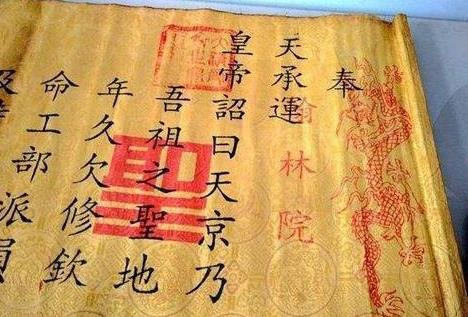 奉
天承運
翰林院
皇帝詔曰天京乃
吾祖之聖地
年久欠修欽
命工部派員